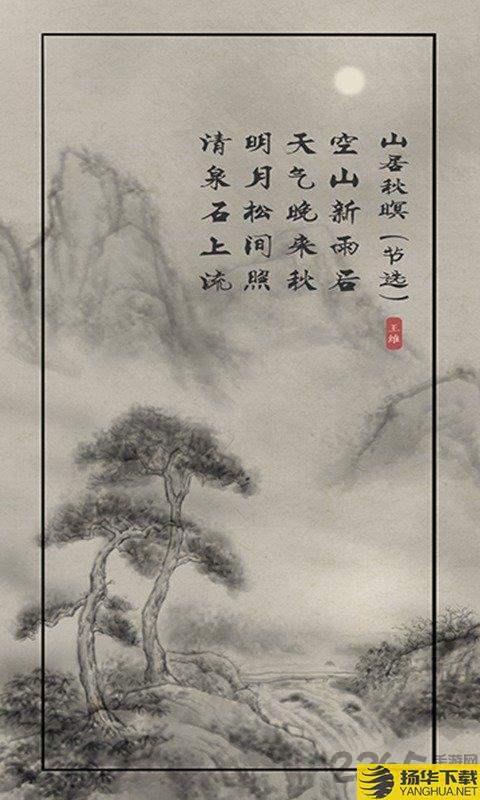 山居秋暝（节选）
空山新雨后
天气晚来秋
明月松间照
清泉石上流
王维
2265手游网
扬华下载
YANGHUA.NET